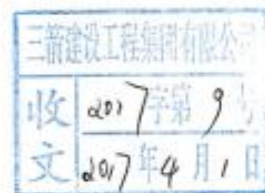 三箭建设工程集团有限公司
收文
2017字第9号
2017年4月1日